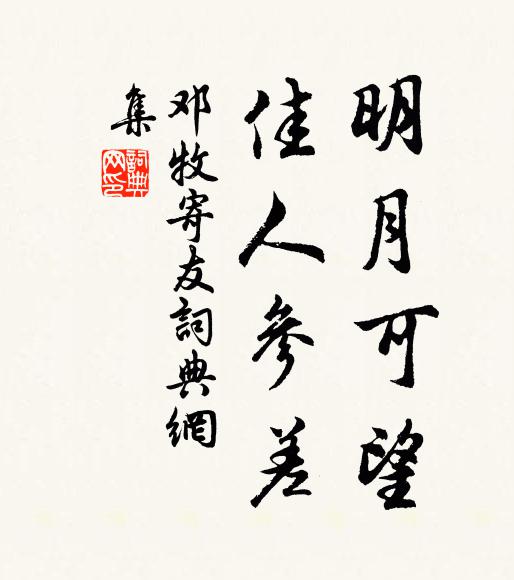 明月可望
佳人參差
邓牧寄友詞典網
集
詞典
网印